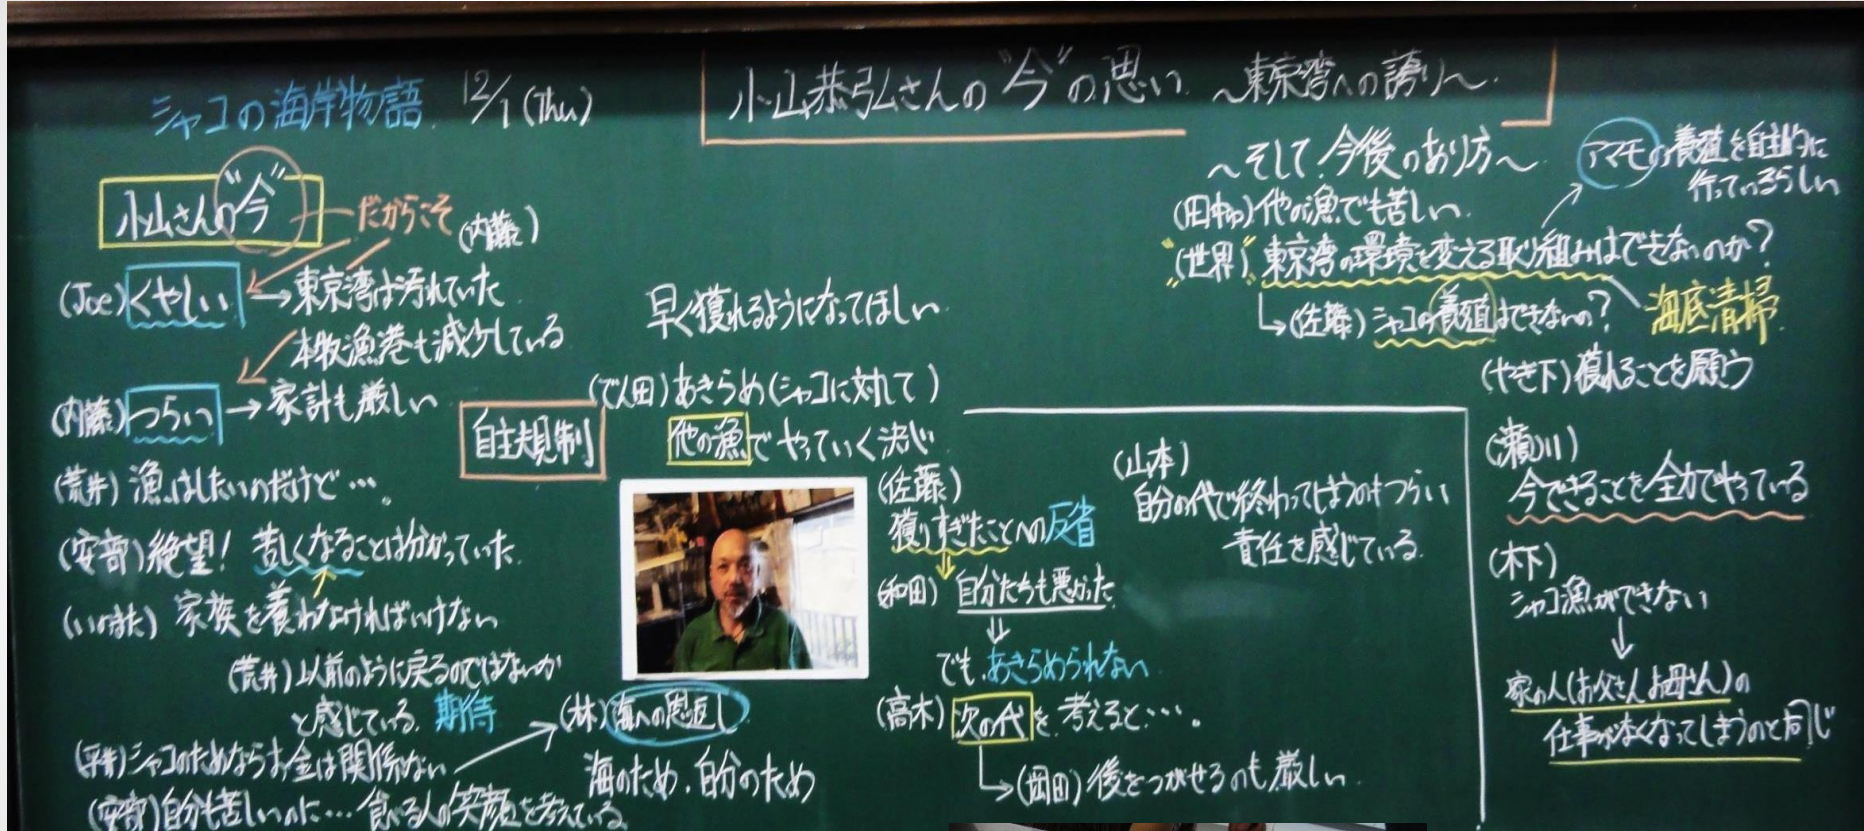 シャコの海岸物語 12/1(Thu)
小山恭弘さんの"今"の思い ～東京湾への誇り～
～そして今後のあり方～
小山さんの"今"
だからこそ
(内藤)
(Joe)くやしい→東京湾は汚れていた
本牧漁港も減少している
(内藤)つらい→家計も厳しい
(荒井)漁はしたいのだけど…。
(安部)絶望! 苦しくなることは分かっていた。
家族を養わなければいけない
(荒井)以前のように戻るのではないか
と感じている。期待
(平井)シャコのためならお金は関係ない
(安部)自分も苦しいのに…食べる人の笑顔を考えている
早く獲れるようになってほしい
(でん田)あきらめ(シャコに対して)
自主規制
他の漁でやっていく決心
(林)海への恩返し
海のため、自分のため
(佐藤)
獲りすぎたことへの反省
(和田)自分たちも悪かった
でも、あきらめられない
(高木)次の代を考えると…。
(岡田)後をつがせるのも厳しい
(山本)
自分の代で終わってしまうのもつらい
責任を感じている
(田中ゆ)他の漁でも苦しい
"(世界)"東京湾の環境を変える取り組みはできないのか?
アマモの養殖を自主的に
行っているらしい
海底清掃
(佐藤)シャコの養殖はできないの?
(やぎ下)獲れることを願う
(瀬川)
今できることを全力でやっている
(木下)
シャコ漁ができない
↓
家の人(お父さんお母さん)の
仕事がなくなってしまうのと同じ